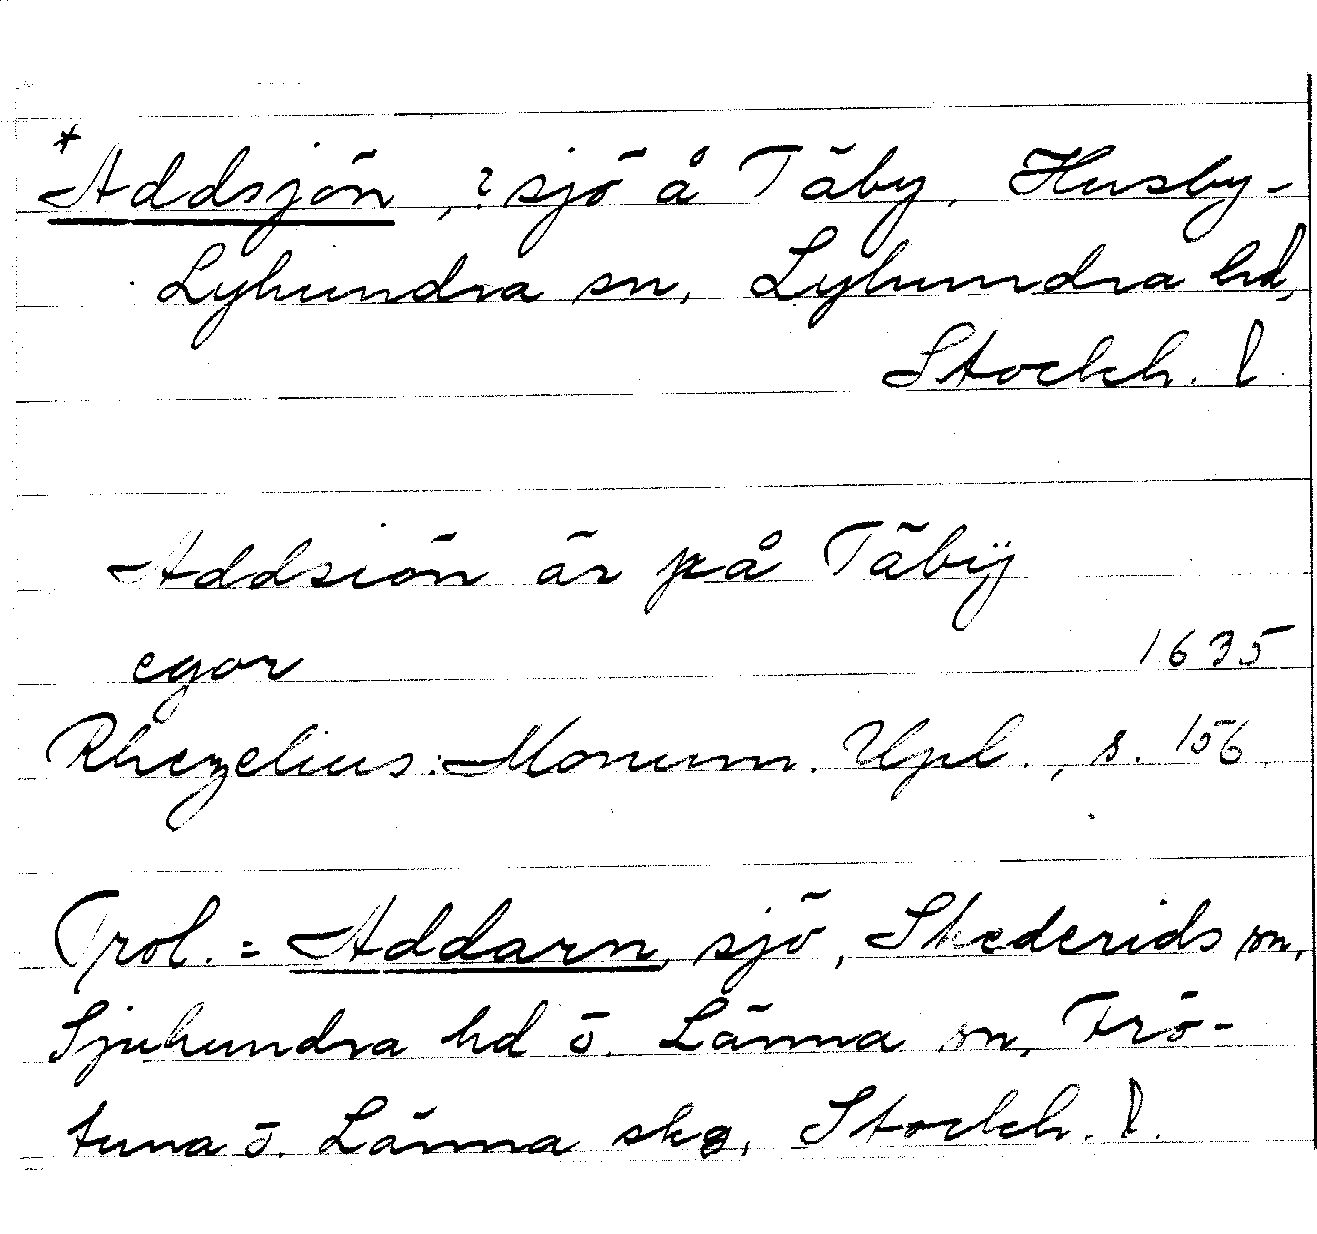 *Addsjön, ? sjö å Täby, Husby-
Lyhundra sn, Lyhundra hd,
Stockh. l.
Addsiön är på Täbÿ
egor 1635
Rhezelius: Monum. Upl., s. 156.
Trol. = Addarn, sjö, Skederids sn,
Sjuhundra hd o. Länna sn, Frö-
tuna o. Länna skg, Stockh. l.